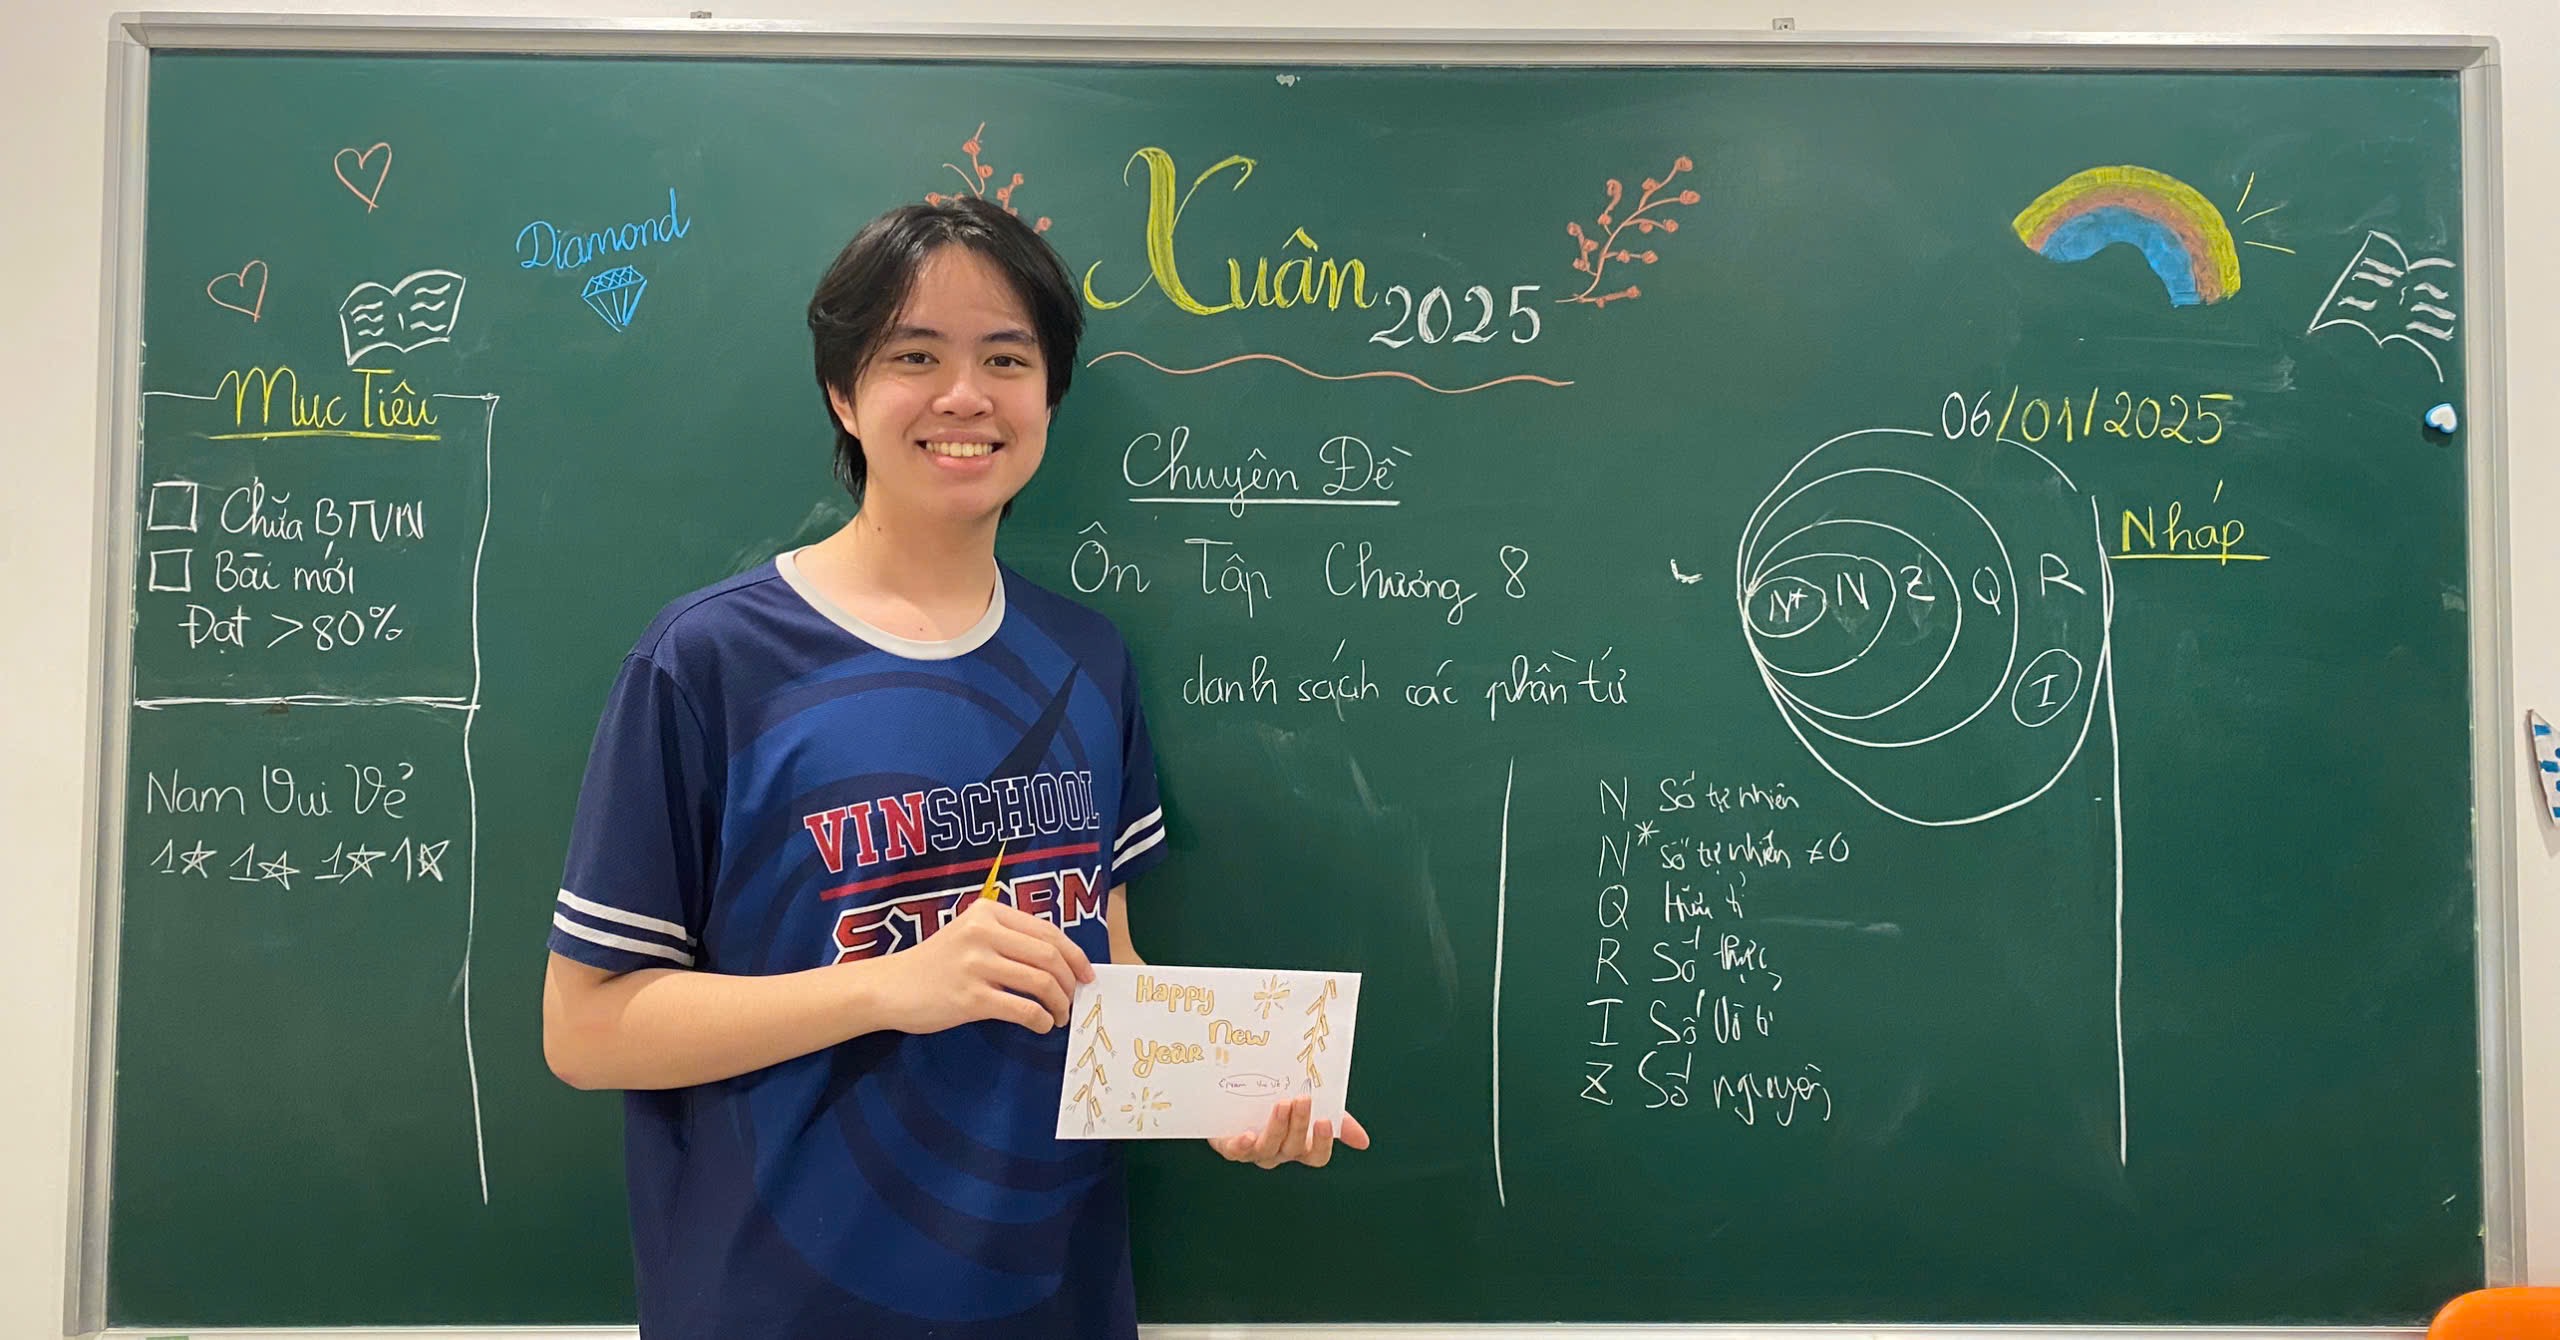 Diamond
Xuân 2025
Mục Tiêu
Chữa BTVN
Bài mới
Đạt >80%
Nam Vui Vẻ
1☆ 1☆ 1☆ 1☆
Chuyên Đề
Ôn Tập Chương 8
danh sách các phần tử
06/01/2025
N* N Z Q R
I
Nháp
N Số tự nhiên
N* số tự nhiên ≠0
Q Hữu tỉ
R Số thực
I Số Vô tỉ
Z Số nguyên
VINSCHOOL
STORM
Happy
New
Year !!
Nam Vui Vẻ